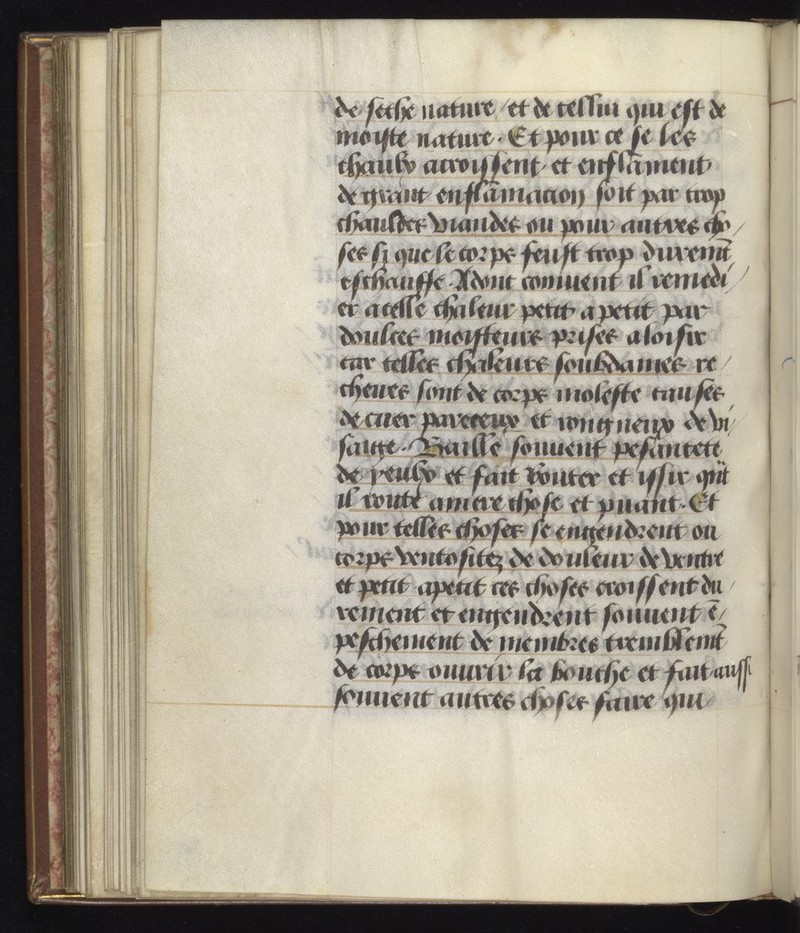 de seche nature / et de cellui qui est de
moiste nature. Et pour ce se les
chaulx acroissent et enflãment
de grant enflãmacion soit par trop
chauldes viandes ou pour autres cho/
ses si que le corps feust trop durem̃t
eschauffe. Adont conuient il remedi/
er a telle chaleur petit a petit par
doulces moisteurs prises a loisir
car telles chaleurs soubdaines re/
cheues sont de corps moleste causes
de cuer pareceux et rongneux de vi/
saige. Baille souuent pesantete
de yeulx et fait router et issir qñt
il route amere chose et puant. Et
pour telles choses se engendrent ou
corps ventositez de douleur de ventre
et petit apetit ces choses croissent du/
rement et engendrent souuent ẽ/
peschement de membres tremblem̃t
de corps ouurir la bouche et fait aussi
souuent autres choses faire qui